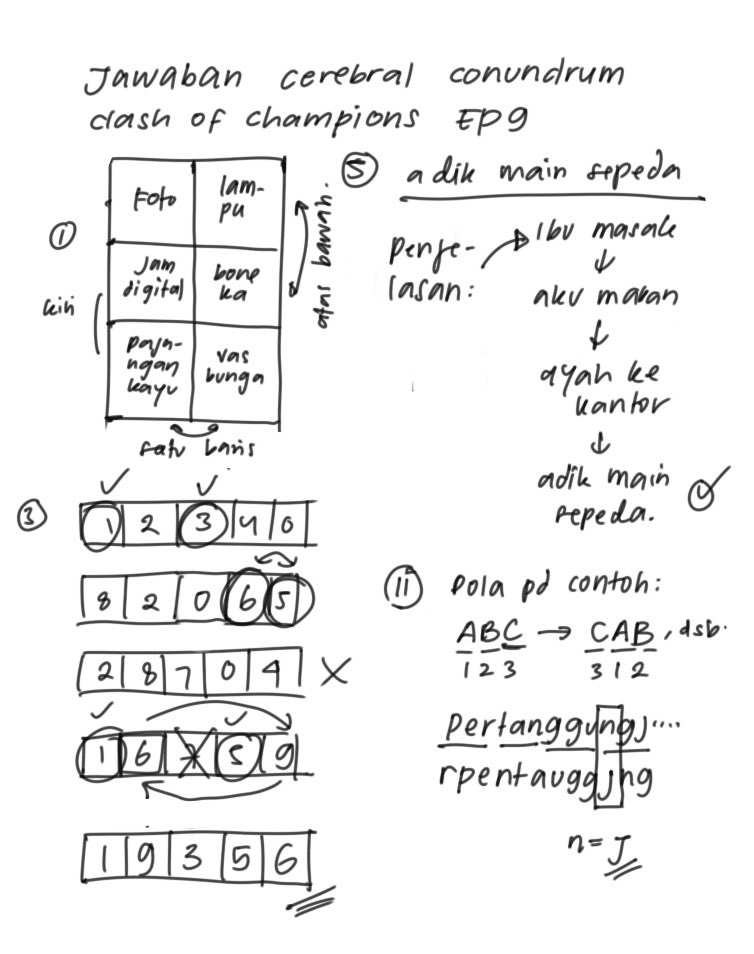 Jawaban cerebral conundrum
clash of champions EP9
①
Foto
lam-
pu
Jam
digital
bone
ka
paja-
ngan
kayu
vas
bunga
kiri
atas bawah.
satu baris
③
1 2 3 4 0
8 2 0 6 5
2 8 7 0 4 X
1 6 7 5 9
1 9 3 5 6
⑤ adik main sepeda
penje-
lasan:
Ibu masak
↓
aku makan
↓
ayah ke
kantor
↓
adik main
sepeda.
⑪ Pola pd contoh:
ABC → CAB, dsb.
1 2 3 3 1 2
Pertanggungj....
rpentauggjng
n = J